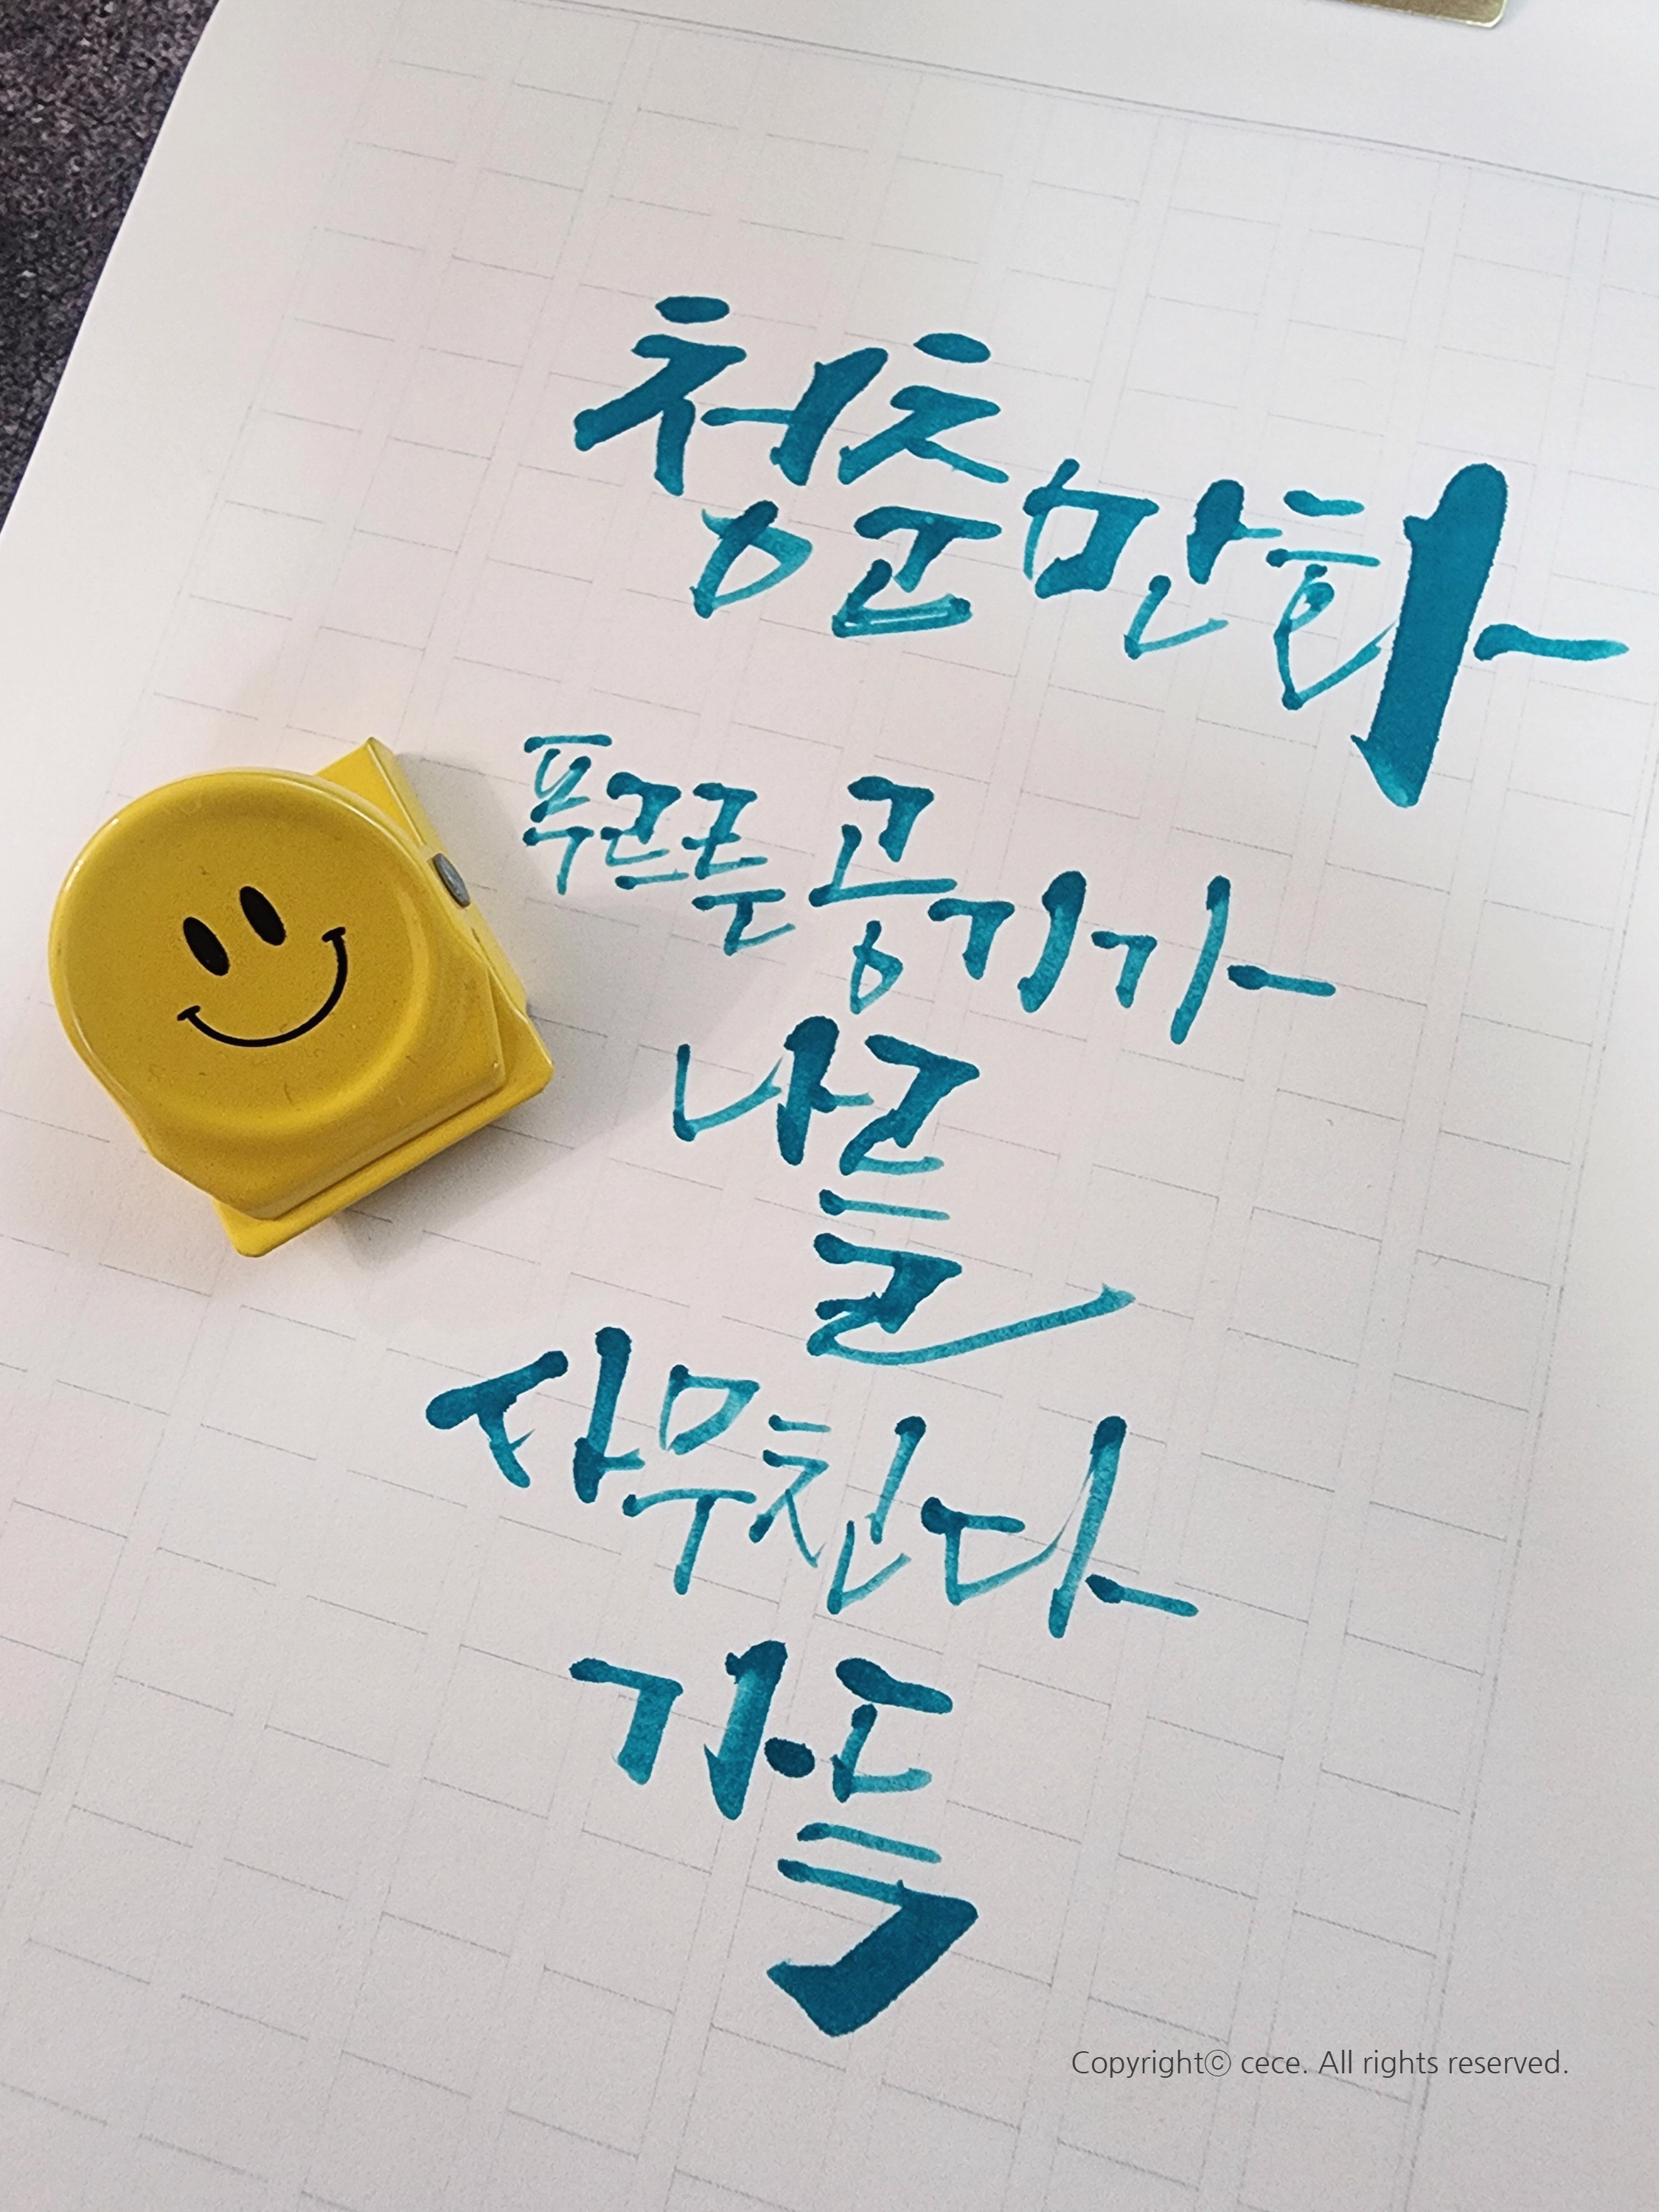 청춘만화
푸르른 공기가
나를
사무친다
가득
Copyrightⓒ cece. All rights reserved.